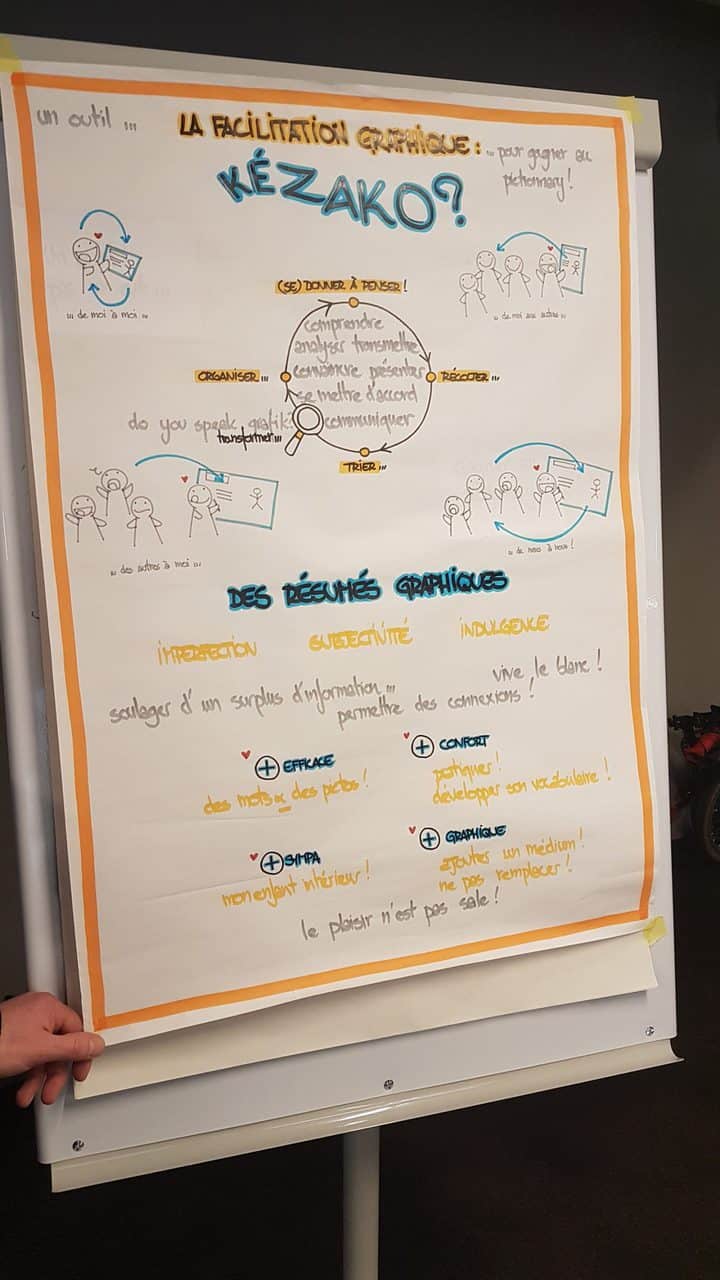 un outil ...
LA FACILITATION GRAPHIQUE :
... pour gagner au
pictionnary !
KÉZAKO ?
... de moi à moi ...
... de moi aux autres ...
(SE) DONNER À PENSER !
comprendre
analyser transmettre
convaincre présenter
se mettre d'accord
communiquer
ORGANISER ...
RÉCOLTER ...
do you speak grafik?
transformer ...
TRIER ...
... des autres à moi ...
... de nous à nous !
DES RÉSUMÉS GRAPHIQUES
IMPERFECTION
SUBJECTIVITÉ
INDULGENCE
soulager d'un surplus d'information ...
permettre des connexions !
vive le blanc !
+ EFFICACE
des mots & des pictos !
+ CONFORT
pratiquer !
développer son vocabulaire !
+ SYMPA
mon enfant intérieur !
+ GRAPHIQUE
ajouter un médium !
ne pas remplacer !
le plaisir n'est pas sale !